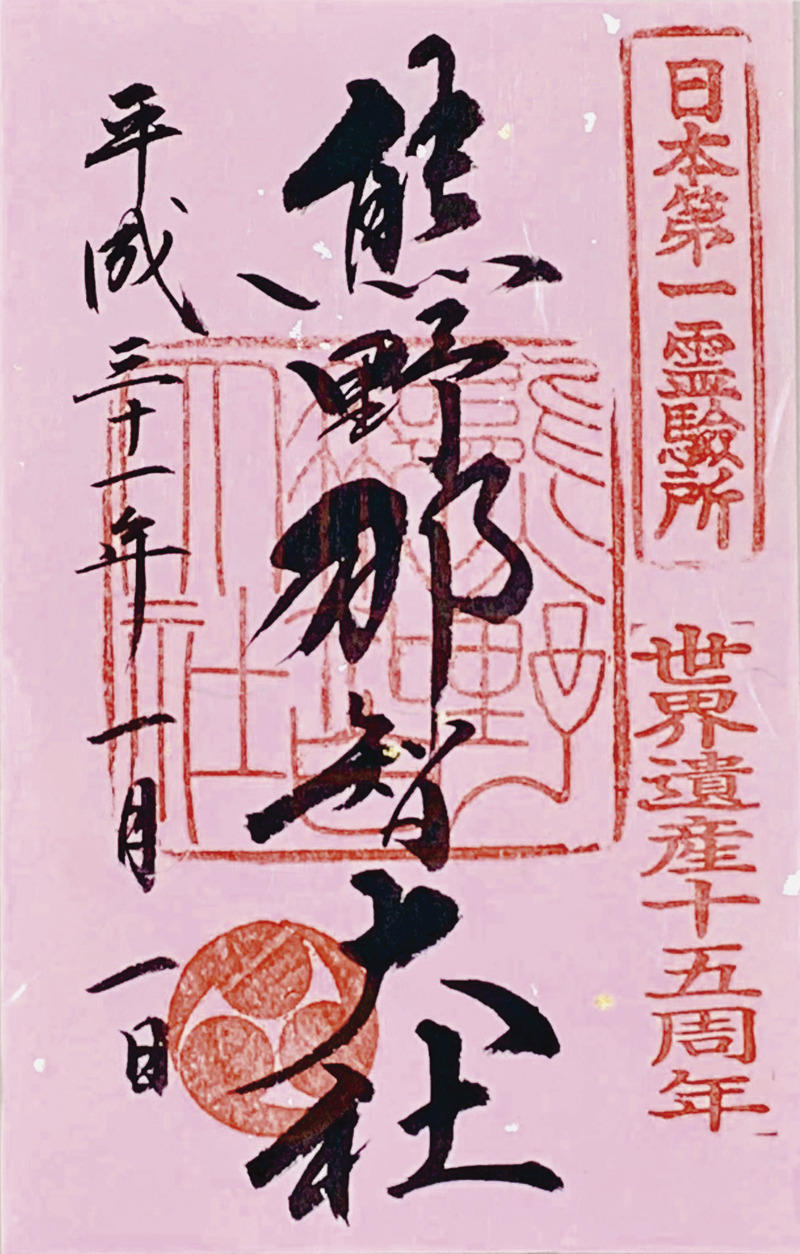 日本第一霊験所
世界遺産十五周年
熊野那智大社
平成三十一年一月一日